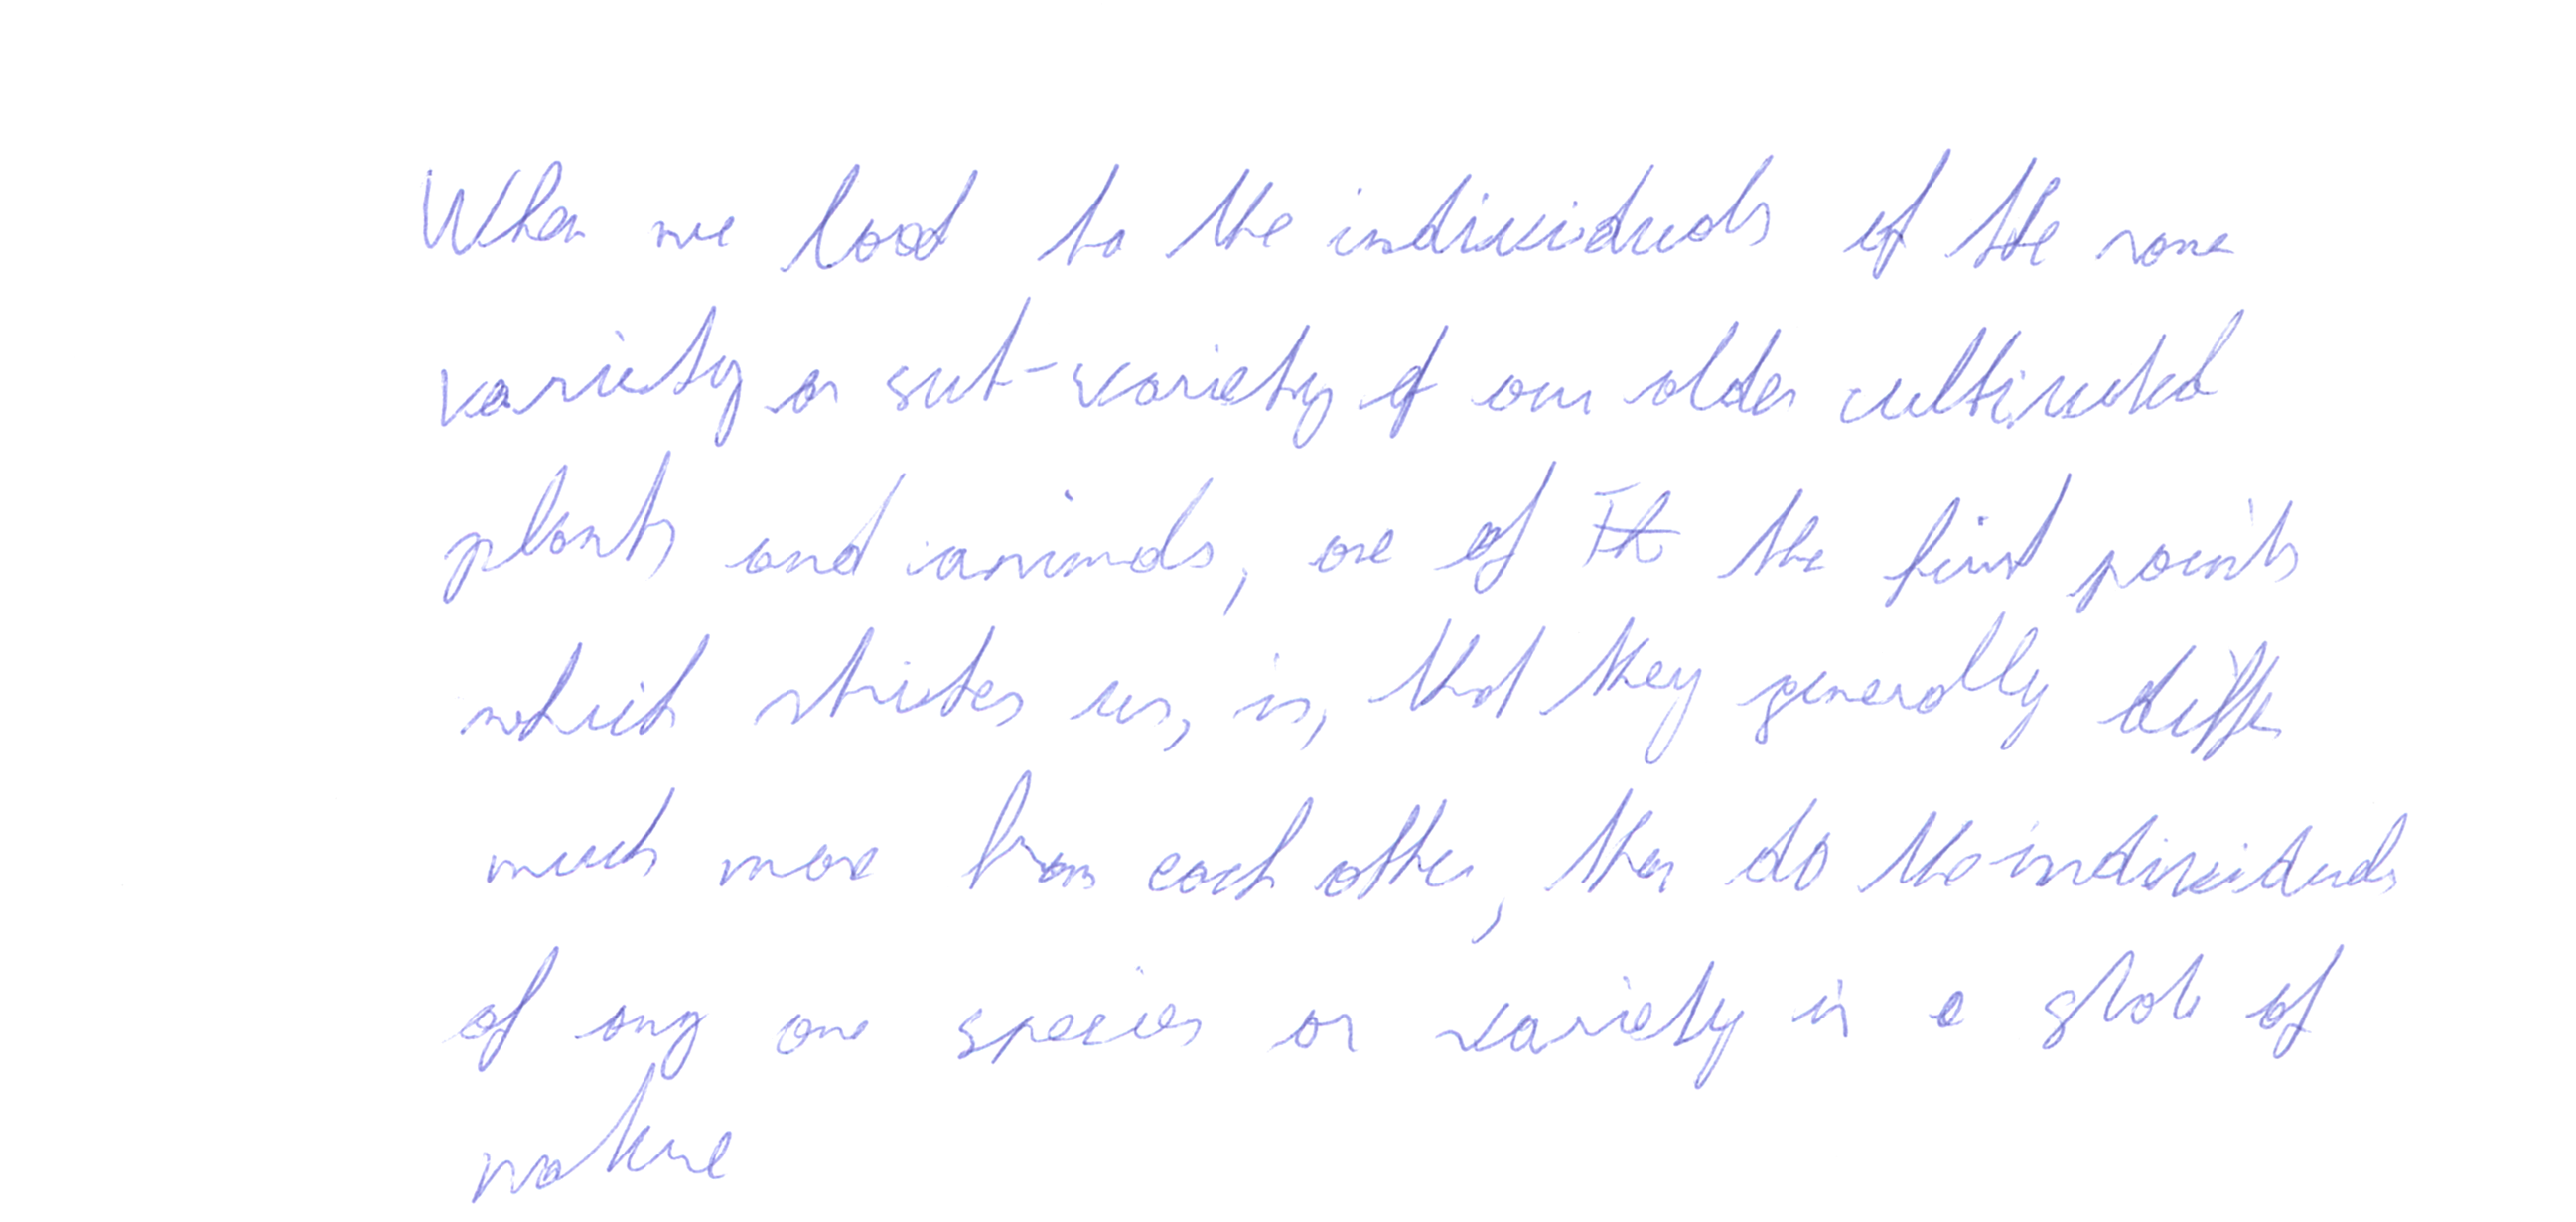 When we look to the individuals of the same
variety or sub-variety of our older cultivated
plants and animals, one of the the first points
which strikes us, is, that they generally differ
much more from each other, than do the individuals
of any one species or variety in a state of
nature